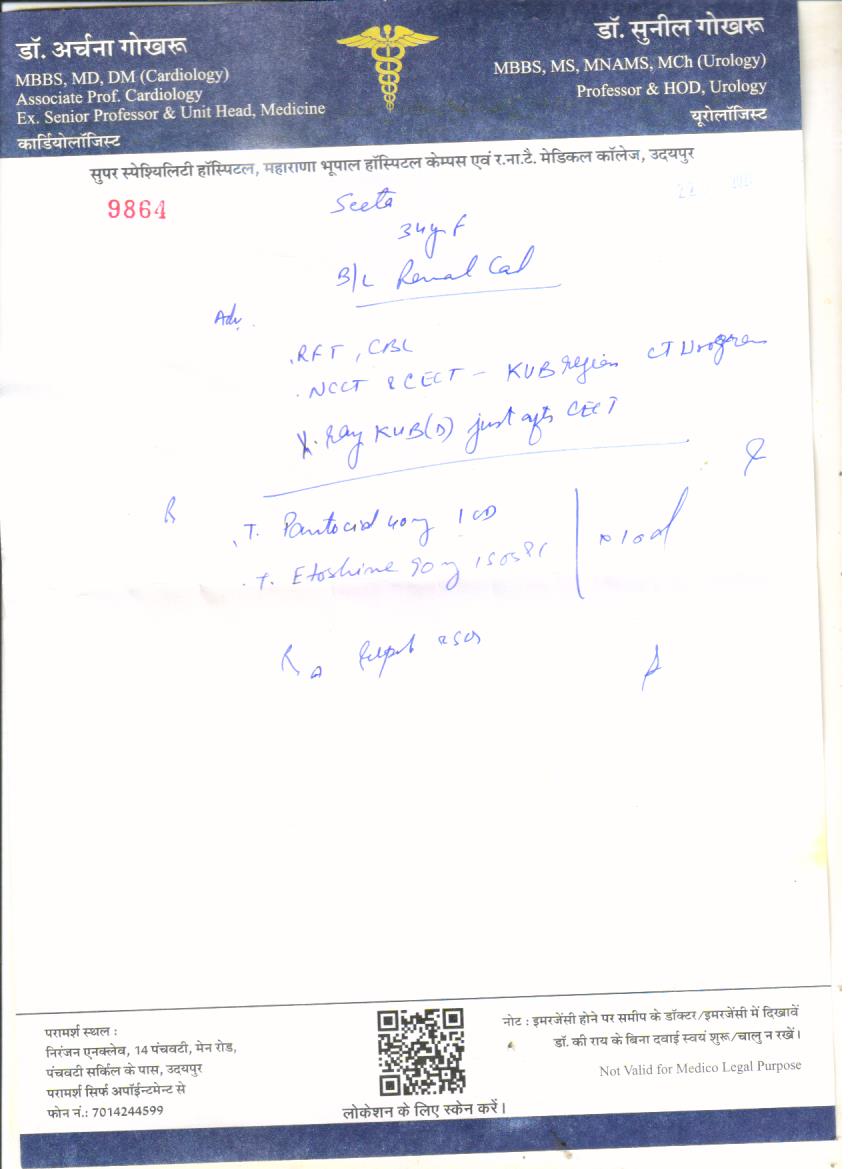 डॉ. अर्चना गोखरू
MBBS, MD, DM (Cardiology)
Associate Prof. Cardiology
Ex. Senior Professor & Unit Head, Medicine
कार्डियोलॉजिस्ट
डॉ. सुनील गोखरू
MBBS, MS, MNAMS, MCh (Urology)
Professor & HOD, Urology
यूरोलॉजिस्ट
सुपर स्पेश्यिलिटी हॉस्पिटल, महाराणा भूपाल हॉस्पिटल केम्पस एवं र.ना.टै. मेडिकल कॉलेज, उदयपुर
9864
Seeta
34y F
B/L Renal Cal
Adv.
. RFT, CBC
. NCCT & CECT - KUB region CT Urogram
X-Ray KUB(D) just after CECT
R
. T. Pantocid 40mg 1 OD
. T. Etoshine 90mg 1 SOS
x 10d
परामर्श स्थल :
निरंजन एनक्लेव, 14 पंचवटी, मेन रोड,
पंचवटी सर्किल के पास, उदयपुर
परामर्श सिर्फ अपॉईन्टमेन्ट से
फोन नं.: 7014244599
लोकेशन के लिए स्केन करें।
नोट : इमरजेंसी होने पर समीप के डॉक्टर/इमरजेंसी में दिखावें
डॉ. की राय के बिना दवाई स्वयं शुरू/चालु न रखें।
Not Valid for Medico Legal Purpose